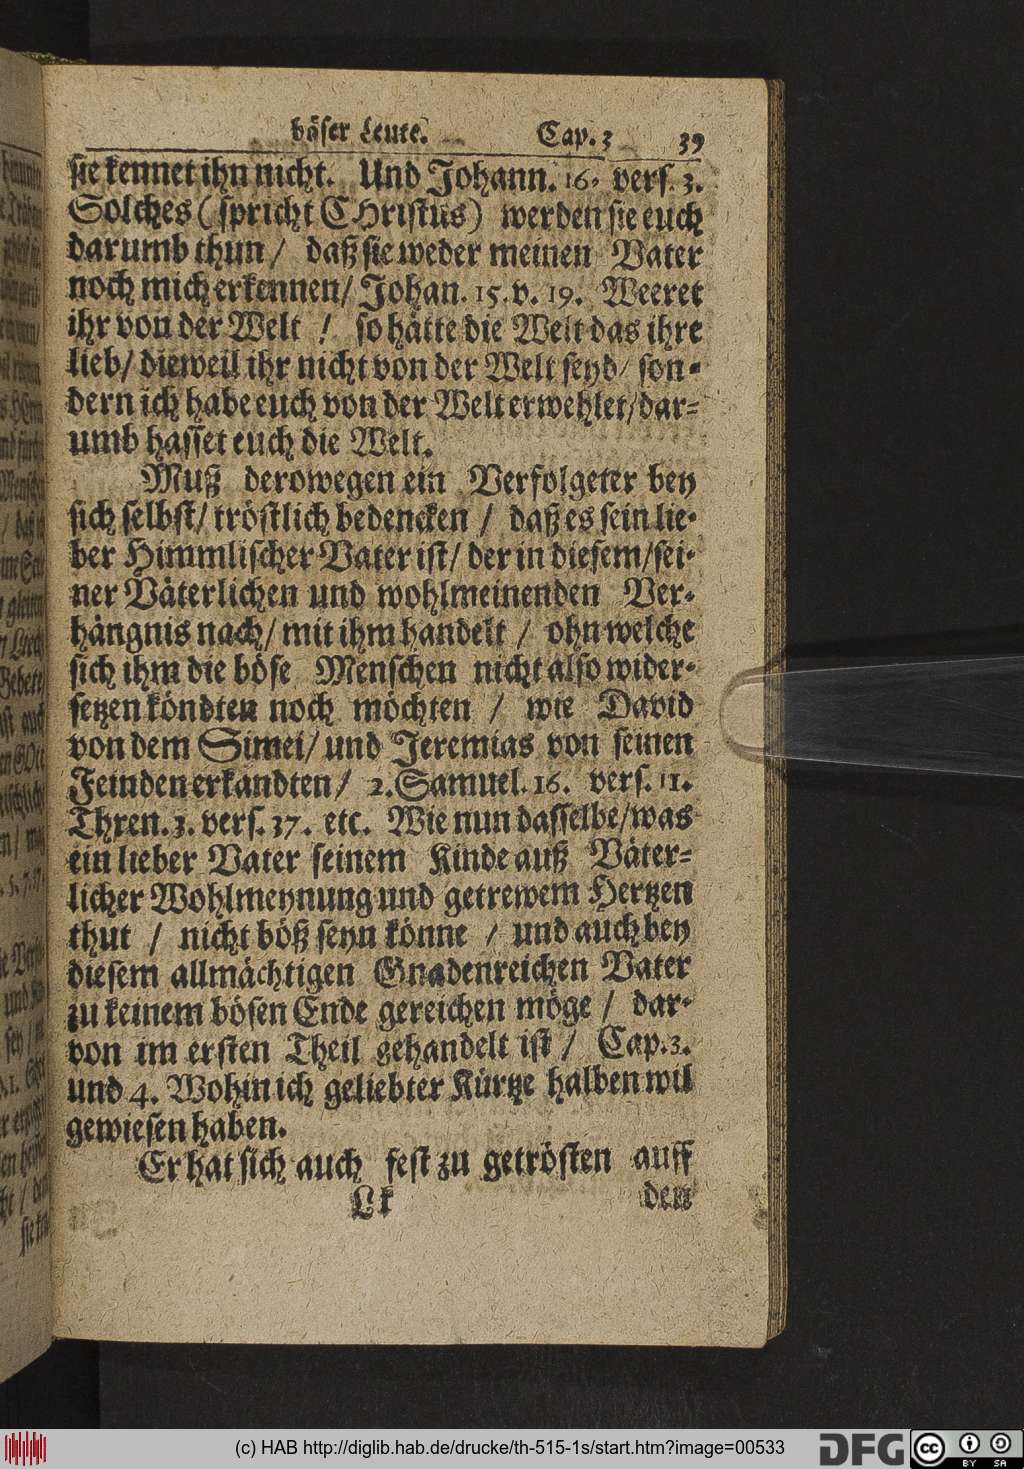 böser Leute. Cap. 3 39
sie kennet ihn nicht. Und Johann. 16. vers. 3.
Solches (spricht CHristus) werden sie euch
darumb thun / daß sie weder meinen Vater
noch mich erkennen / Johan. 15. v. 19. Weeret
ihr von der Welt / so hätte die Welt das ihre
lieb / dieweil ihr nicht von der Welt seyd / son-
dern ich habe euch von der Welt erwehlet / dar-
umb hasset euch die Welt.
Muß derowegen ein Verfolgeter bey
sich selbst / tröstlich bedencken / daß es sein lie-
ber Himmlischer Vater ist / der in diesem / sei-
ner Väterlichen und wohlmeinenden Ver-
hängnis nach / mit ihm handelt / ohn welche
sich ihm die böse Menschen nicht also wider-
setzen köndten noch möchten / wie David
von dem Simei / und Jeremias von seinen
Feinden erkandten / 2. Samuel. 16. vers. 11.
Thren. 3. vers. 37. etc. Wie nun dasselbe / was
ein lieber Vater seinem Kinde auß Väter-
licher Wohlmeynung und getrewem Hertzen
thut / nicht böß seyn könne / und auch bey
diesem allmächtigen Gnadenreichen Vater
zu keinem bösen Ende gereichen möge / dar-
von im ersten Theil gehandelt ist / Cap. 3.
und 4. Wohin ich geliebter Kürtze halben wil
gewiesen haben.
Er hat sich auch fest zu getrösten auff
Lk den
(c) HAB http://diglib.hab.de/drucke/th-515-1s/start.htm?image=00533
DFG
cc BY SA